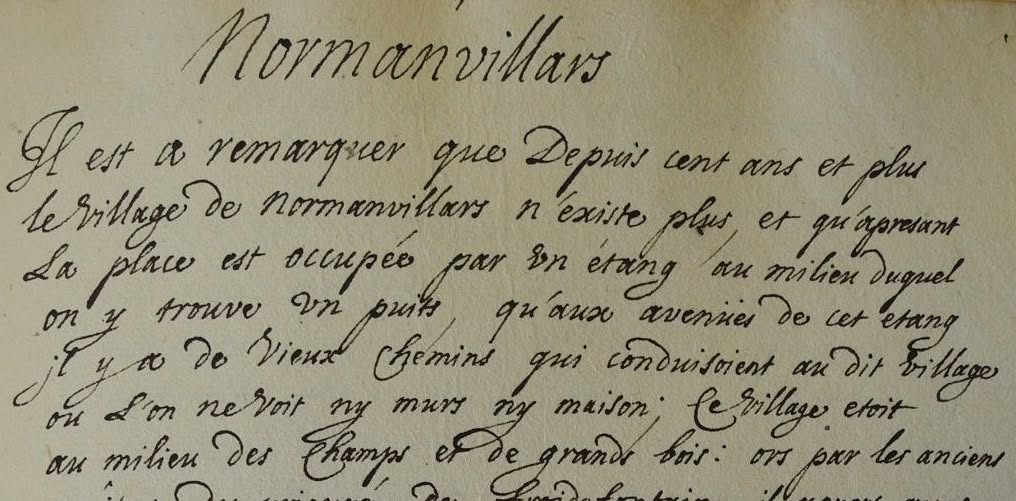 Normanvillars
Il est a remarquer que Depuis cent ans et plus
le Village de Normanvillars n'existe plus, et qu'apresant
La place est occupée par Vn étang au milieu duquel
on y trouve Vn puits, qu'aux avenües de cet etang
il y a de Vieux Chemins qui conduisoient au dit Village
ou L'on ne Voit ny murs ny maison; Ce Village etoit
au milieu des Champs et de grands bois: ors par les anciens